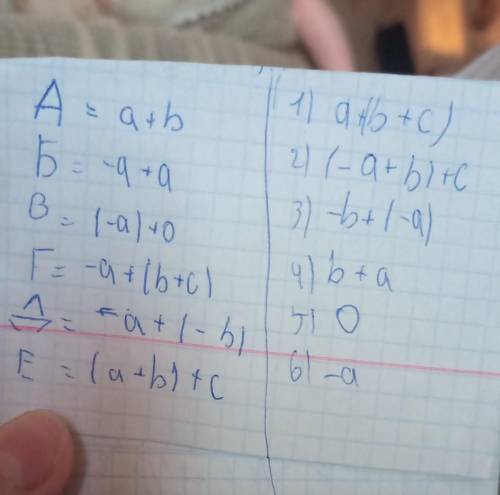 А = a+b
Б = -a+a
В = (-a)+0
Г = -a+(b+c)
Д = -a+(-b)
Е = (a+b)+c
1) a+(b+c)
2) (-a+b)+c
3) -b+(-a)
4) b+a
5) 0
6) -a